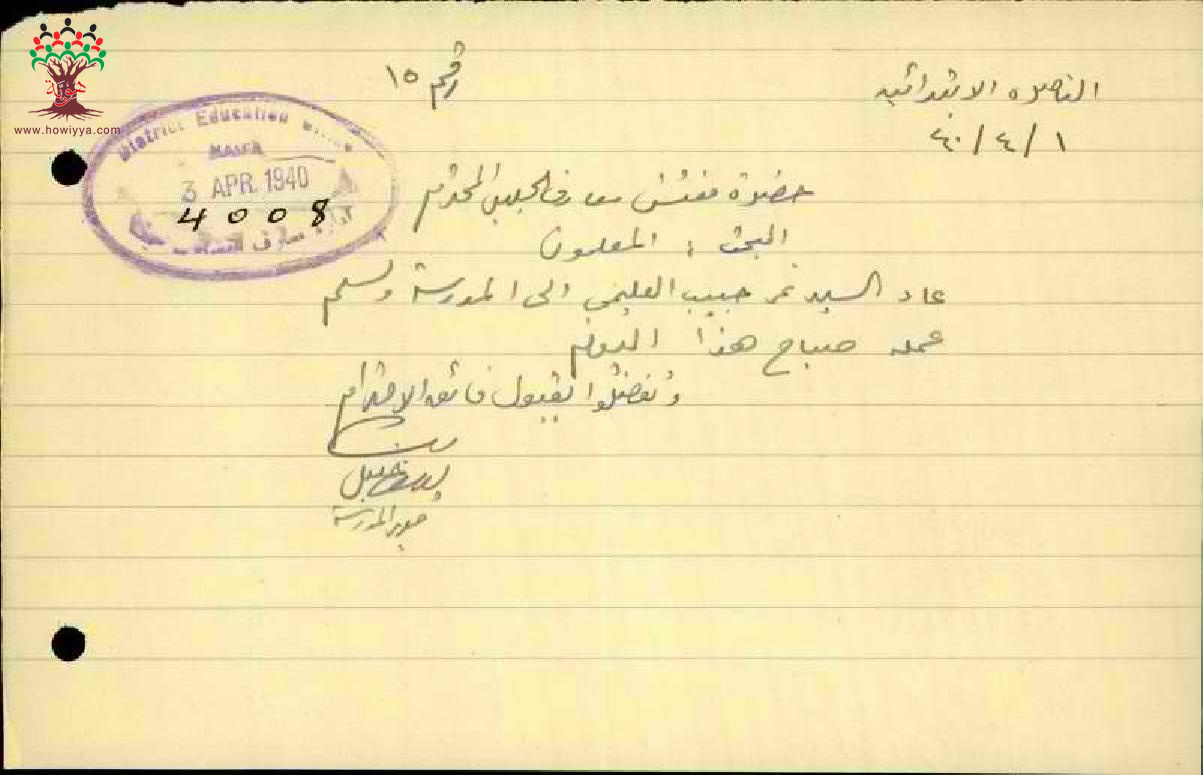 www.howiyya.com
الناصره الابتدائيه
رقم ١٥
٤٠/٤/١
District Education Office
HAIFA
3 APR. 1940
4008
معارف
حضرة مفتش معارف الجليل المحترم
البحث : المعلمون
عاد السيد نمر حبيب الى المدرسة وتسلم
عمله صباح هذا اليوم
وتفضلوا بقبول فائق الاحترام
مدير المدرسة